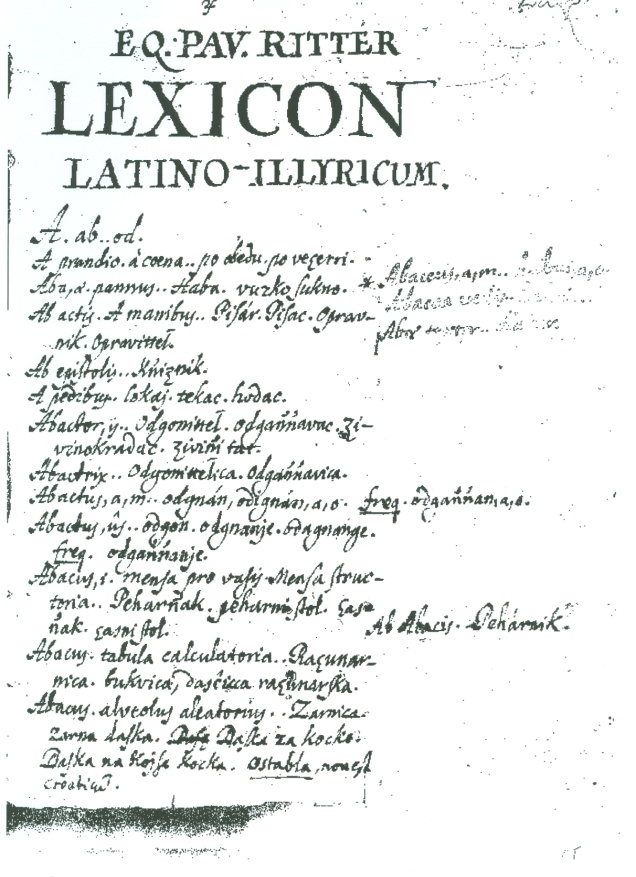 EQ. PAV. RITTER
LEXICON
LATINO-ILLYRICUM.
A. ab.. od.
A prandio. à coena.. po obedu. po veçerri.
Aba, æ. pannus.. Haba. vuzko sukno.
Ab actis. A manibus.. Pisár. Pisac. Oprav-
nik. Opravittel.
Ab epistolis.. Knižnik.
A pedibus. lokaj. tekac. hodac.
Abactor, is.. Odgonittel. odgannavac. zi-
vinokradac. zivini tat.
Abactrix.. Odgonittelica. odgannavica.
Abactus, a, m.. odgnán, odignán, a, o. freq. odgannan, a, o.
Abactus, ûs.. odgon. odgnanje. odagnange.
freq. odgannanje.
Abacus, i. mensa pro vasis Mensa struc-
toria.. Peharnak. peharni stol. çaš-
nak. çasni stol.
Ab Abacis. Pehárnik.
Abacus. tabula calculatoria.. Raçunar-
nica. bukvica, dasčica raçunarska.
Abacus. alveolus aleatorius.. Zarnica.
zarna daska. Daska za kocke.
Daska na kojse kocka. Ostabla, non est
Croaticũ.